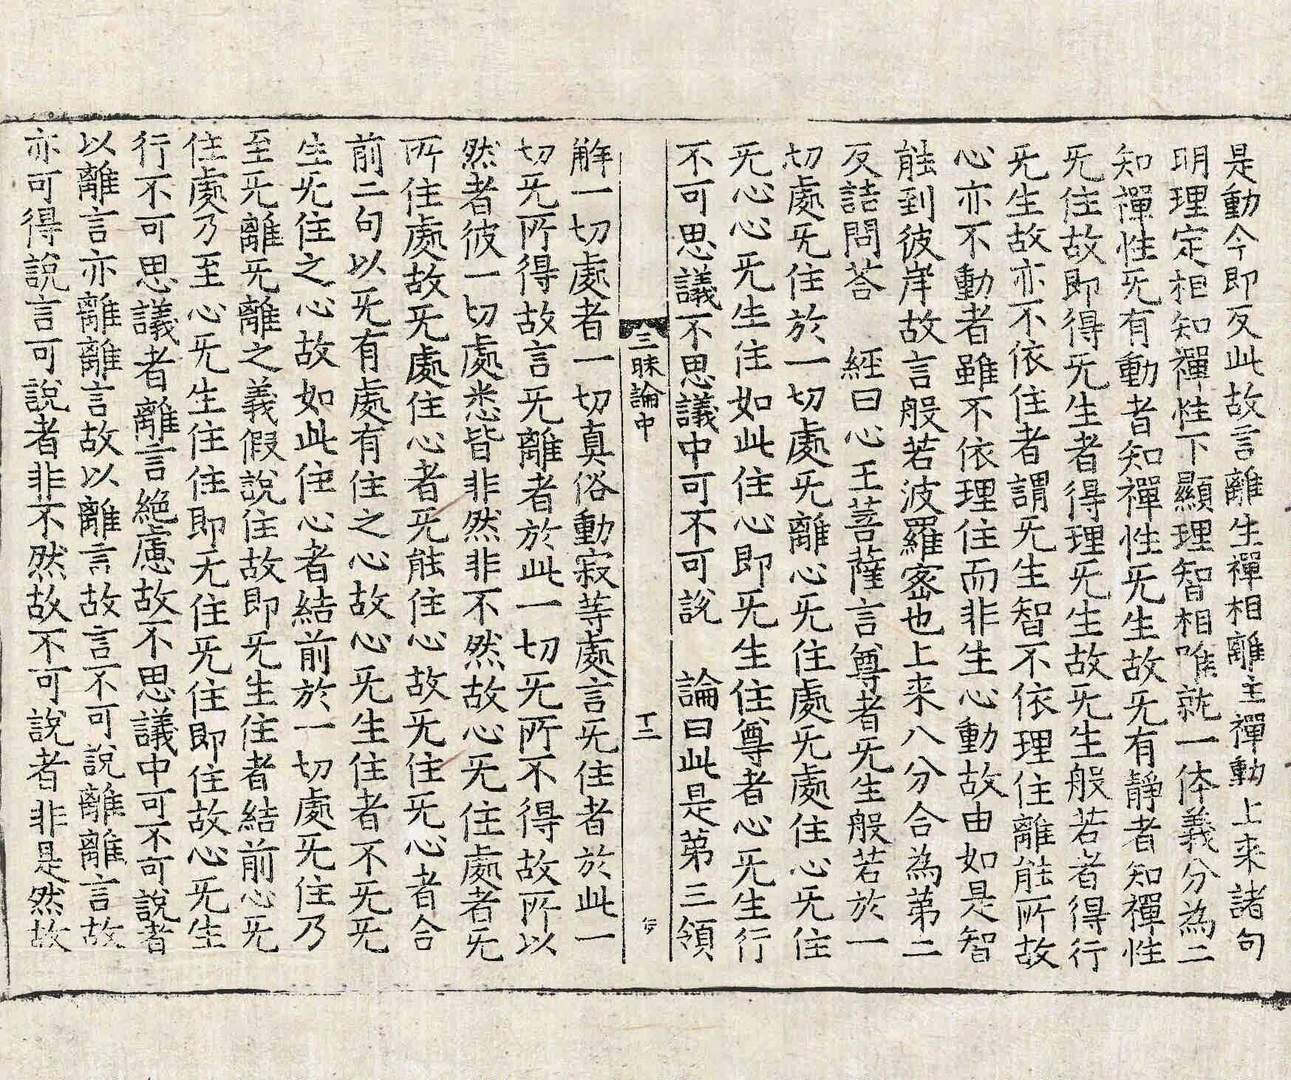 是動今即反此故言離生禪相離主禪動上来諸句
明理定相知禪性下顯理智相唯就一体義分為二
知禪性旡有動者知禪性旡生故旡有靜者知禪性
旡住故即得旡生者得理旡生故旡生般若者得行
旡生故亦不依住者謂旡生智不依理住離能所故
心亦不動者雖不依理住而非生心動故由如是智
能到彼岸故言般若波羅宻也上来八分合為苐二
反詰問荅　經曰心王菩薩言尊者旡生般若於一
切處旡住於一切處旡離心旡住處旡處住心旡住
旡心心旡生住如此住心即旡生住尊者心旡生行
不可思議不思議中可不可說　論曰此是苐三領
三昧論中　十三
解一切處者一切真俗動寂等處言旡住者於此一
切旡所得故言旡離者於此一切旡所不得故所以
然者彼一切處悉皆非然非不然故心旡住處者旡
所住處故旡處住心者旡能住心故旡住旡心者合
前二句以旡有處有住之心故心旡生住者不旡旡
生旡住之心故如此住心者結前於一切處旡住乃
至旡離旡離之義假說住故即旡生住者結前心旡
住處乃至心旡生住住即无住旡住即住故心旡生
行不可思議者離言絶慮故不思議中可不可說者
以離言亦離離言故以離言故言不可說離離言故
亦可得說言可說者非不然故不可說者非是然故